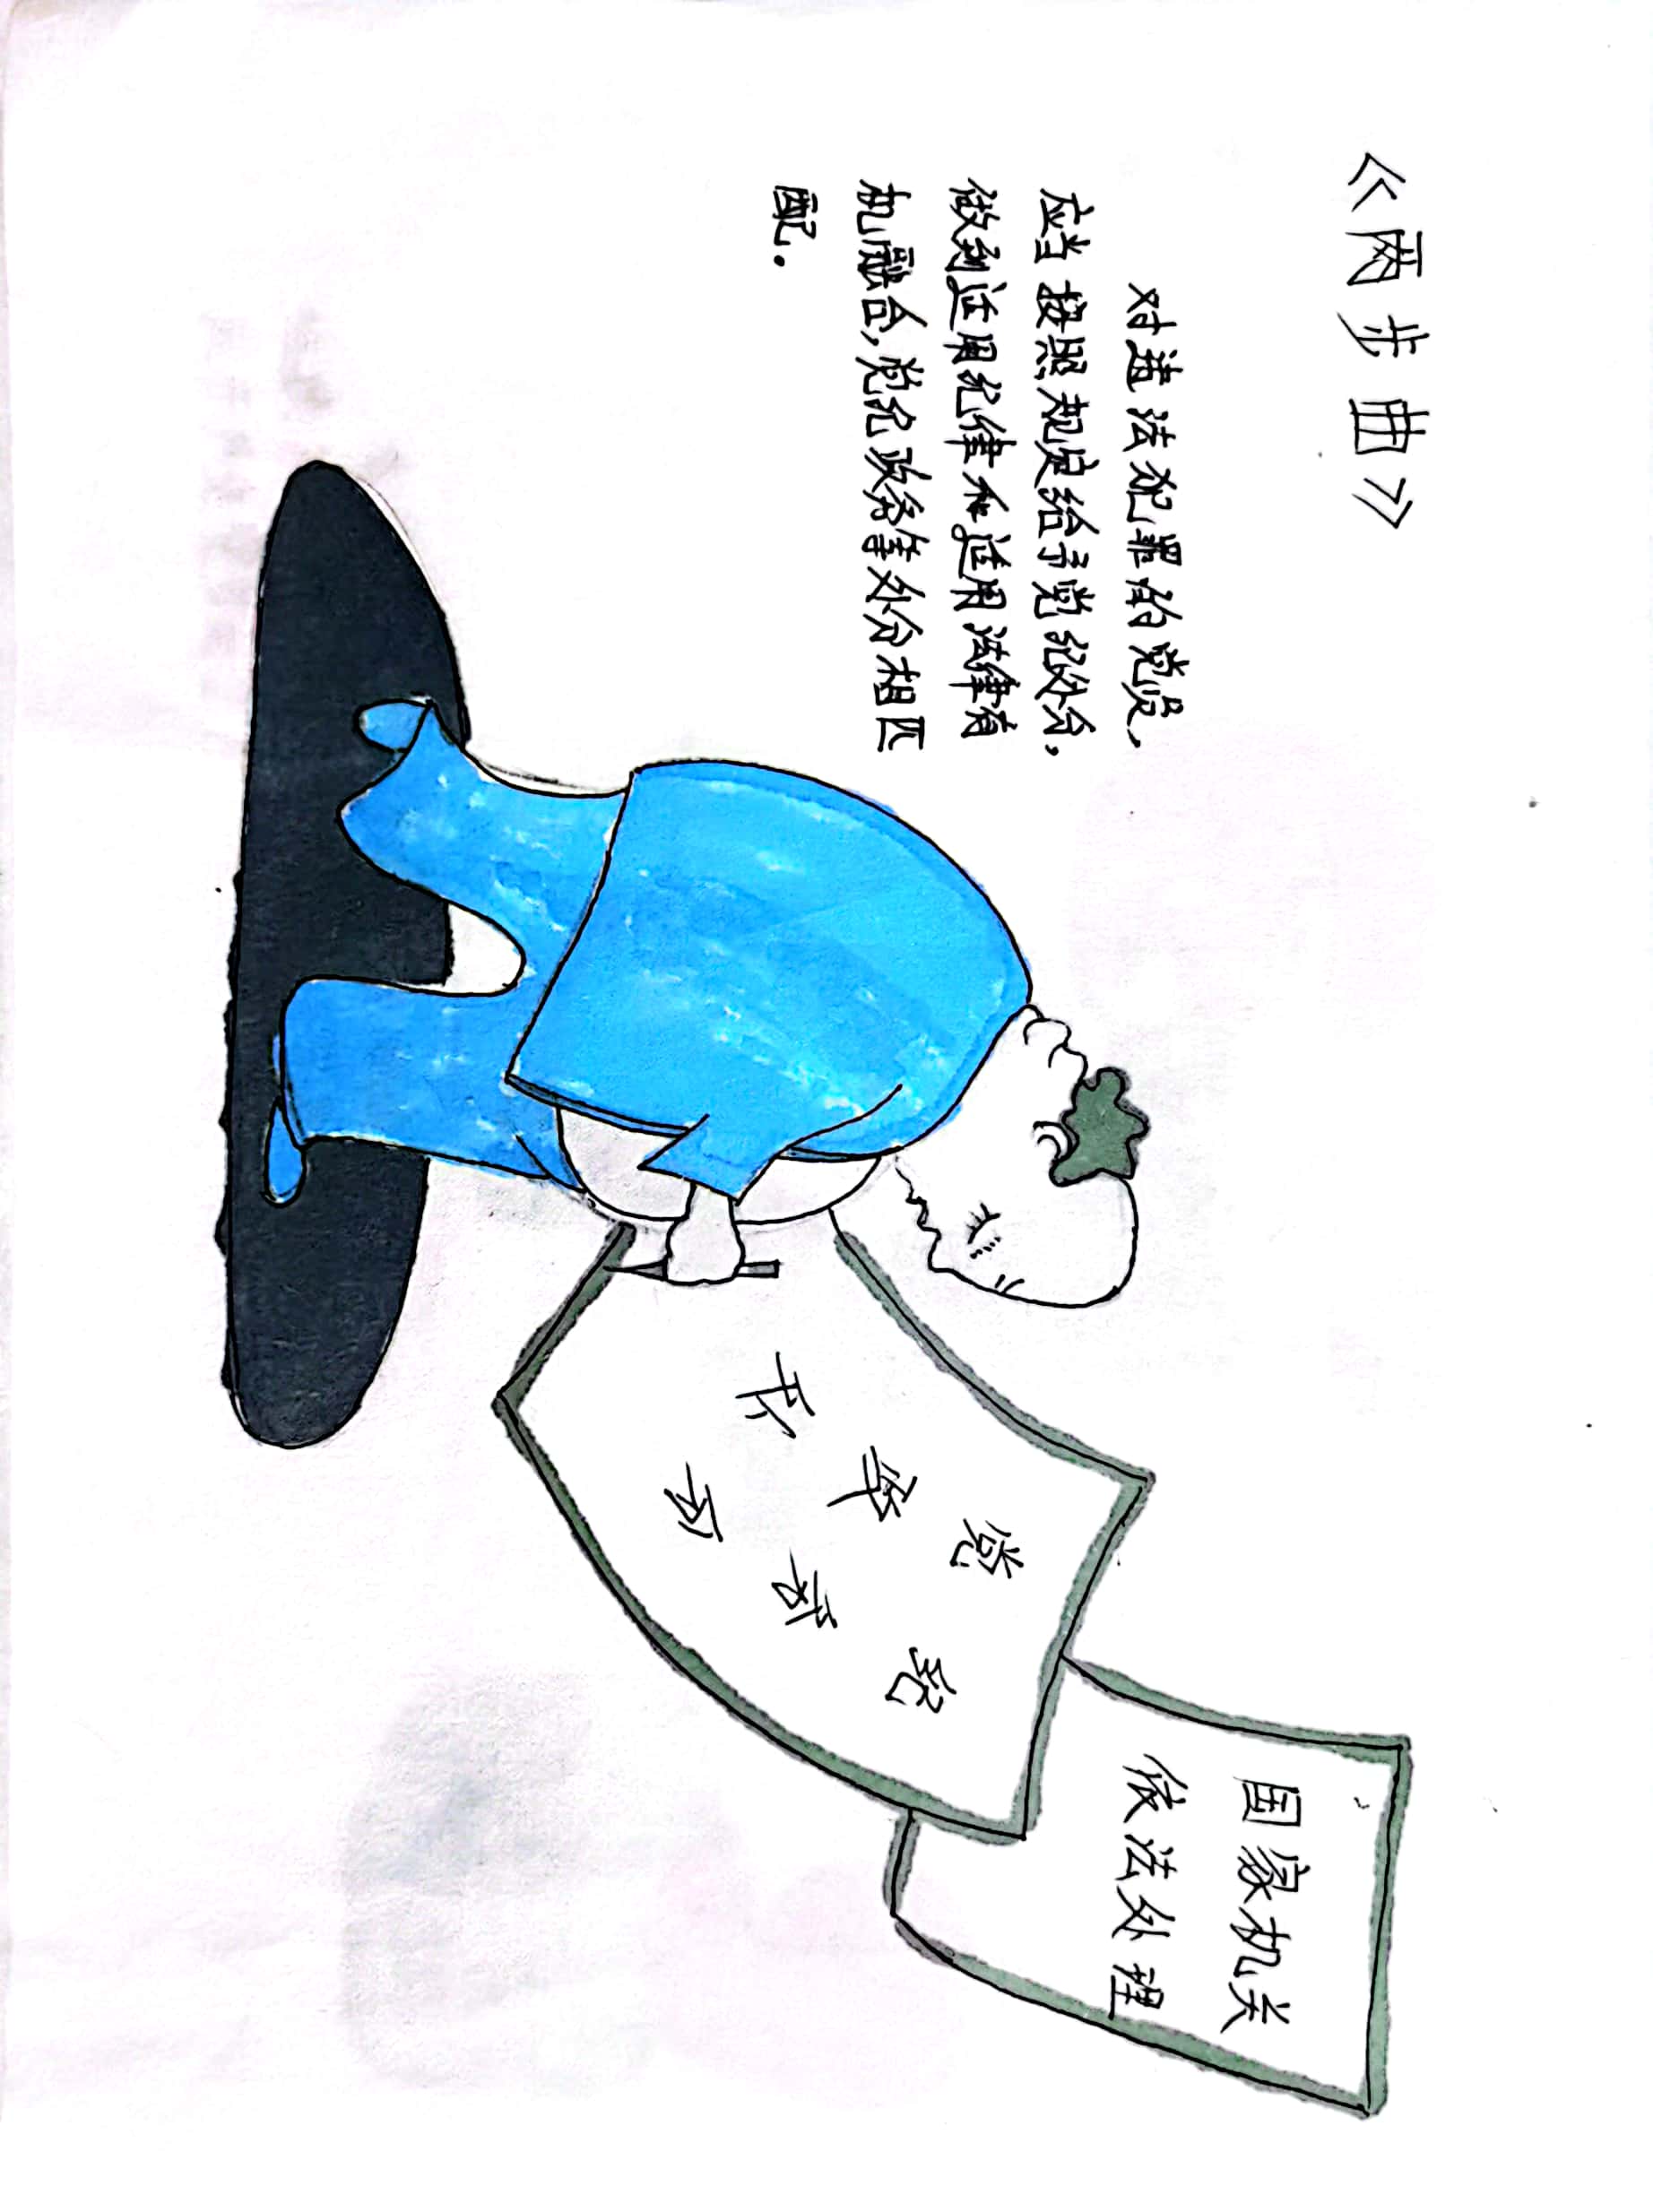 《两步曲》
对违法犯罪的党员，
应当按照规定给予党纪处分，
做到适用纪律和适用法律有
机融合，党纪政务等处分相匹
配．
党纪
国家机关
依法处理